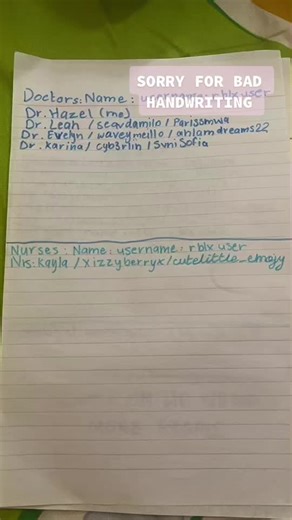 SORRY FOR BAD
HANDWRITING
Doctors: Name: username: rblx user
Dr. Hazel (me)
Dr. Leah / seavdamilo / Parissmwa
Dr. Evelyn / waveymello / ahlamdreams22
Dr. Karina / cyb3rlin / SvniSofia
Nurses: Name: username: rblx user
Nis. Kayla / xizzyberryx / cutelittle_emojy